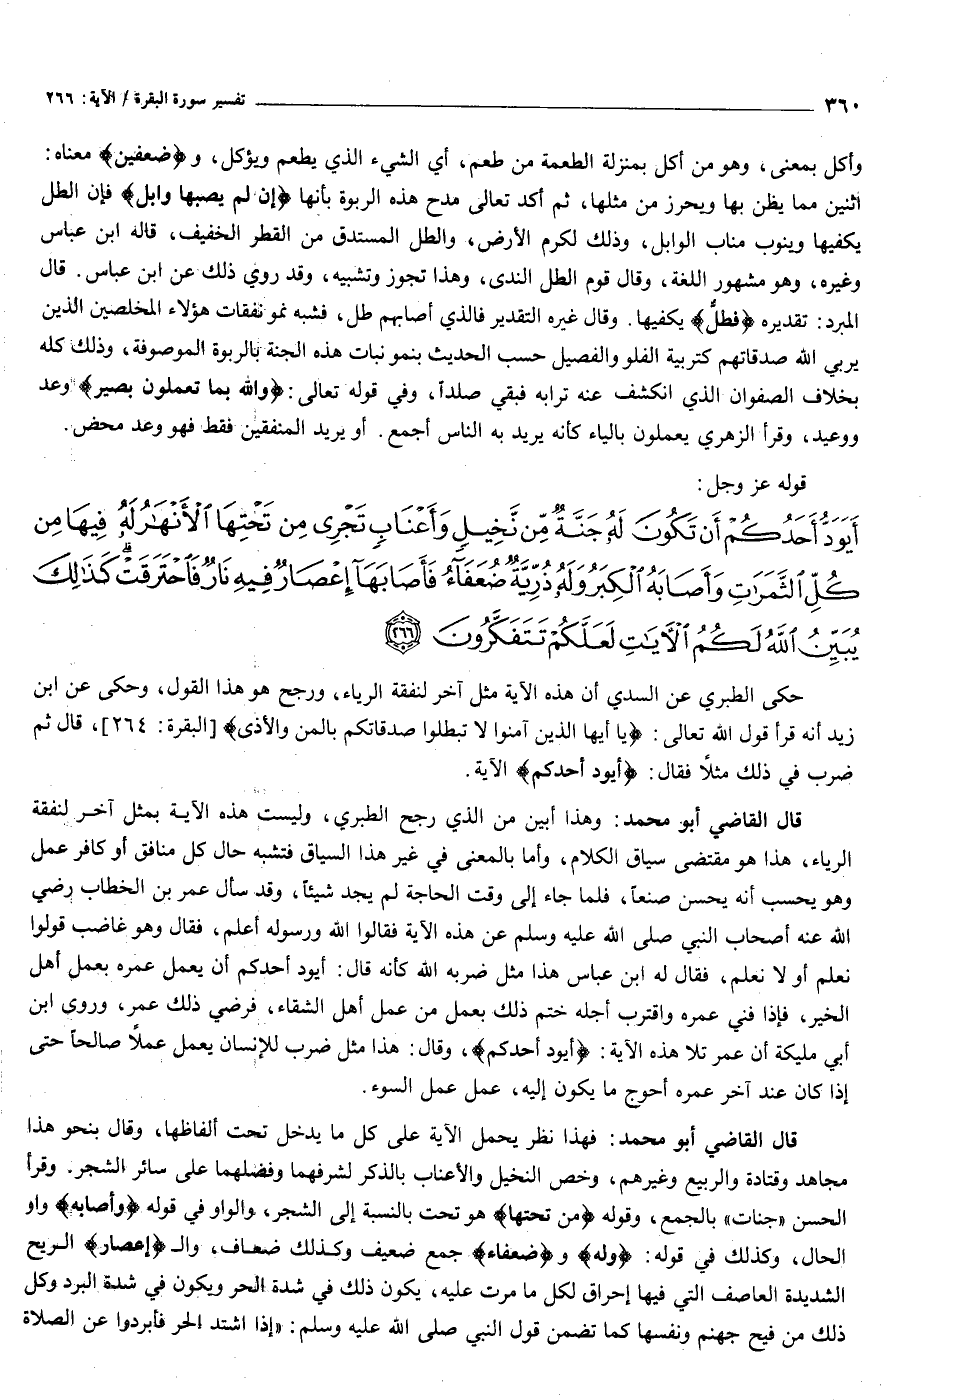 ٣٦٠ ــــــــــــ تفسير سورة البقرة / الآية: ٢٦٦
وأكل بمعنى، وهو من أكل بمنزلة الطعمة من طعم، أي الشيء الذي يطعم ويؤكل، و ﴿ضعفين﴾ معناه:
اثنين مما يظن بها ويحرز من مثلها، ثم أكد تعالى مدح هذه الربوة بأنها ﴿إن لم يصبها وابل﴾ فإن الطل
يكفيها وينوب مناب الوابل، وذلك لكرم الأرض، والطل المستدق من القطر الخفيف، قاله ابن عباس
وغيره، وهو مشهور اللغة، وقال قوم الطل الندى، وهذا تجوز وتشبيه، وقد روي ذلك عن ابن عباس. قال
المبرد: تقديره ﴿فطلٌّ﴾ يكفيها. وقال غيره التقدير فالذي أصابهم طل، فشبه نمو نفقات هؤلاء المخلصين الذين
يربي الله صدقاتهم كتربية الفلو والفصيل حسب الحديث بنمو نبات هذه الجنة بالربوة الموصوفة، وذلك كله
بخلاف الصفوان الذي انكشف عنه ترابه فبقي صلداً، وفي قوله تعالى: ﴿والله بما تعملون بصير﴾ وعد
ووعيد، وقرأ الزهري يعملون بالياء كأنه يريد به الناس أجمع. أو يريد المنفقين فقط فهو وعد محض.
قوله عز وجل:
أَيَوَدُّ أَحَدُكُمْ أَن تَكُونَ لَهُۥ جَنَّةٌ مِّن نَّخِيلٍ وَأَعْنَابٍ تَجْرِى مِن تَحْتِهَا ٱلْأَنْهَـٰرُ لَهُۥ فِيهَا مِن
كُلِّ ٱلثَّمَرَٰتِ وَأَصَابَهُ ٱلْكِبَرُ وَلَهُۥ ذُرِّيَّةٌ ضُعَفَآءُ فَأَصَابَهَآ إِعْصَارٌ فِيهِ نَارٌ فَٱحْتَرَقَتْ ۗ كَذَٰلِكَ
يُبَيِّنُ ٱللَّهُ لَكُمُ ٱلْـَٔايَـٰتِ لَعَلَّكُمْ تَتَفَكَّرُونَ ﴿٢٦٦﴾
حكى الطبري عن السدي أن هذه الآية مثل آخر لنفقة الرياء، ورجح هو هذا القول، وحكى عن ابن
زيد أنه قرأ قول الله تعالى: ﴿يا أيها الذين آمنوا لا تبطلوا صدقاتكم بالمن والأذى﴾ [البقرة: ٢٦٤]، قال ثم
ضرب في ذلك مثلاً فقال: ﴿أيود أحدكم﴾ الآية.
قال القاضي أبو محمد: وهذا أبين من الذي رجح الطبري، وليست هذه الآية بمثل آخر لنفقة
الرياء، هذا هو مقتضى سياق الكلام، وأما بالمعنى في غير هذا السياق فتشبه حال كل منافق أو كافر عمل
وهو يحسب أنه يحسن صنعاً، فلما جاء إلى وقت الحاجة لم يجد شيئاً، وقد سأل عمر بن الخطاب رضي
الله عنه أصحاب النبي صلى الله عليه وسلم عن هذه الآية فقالوا الله ورسوله أعلم، فقال وهو غاضب قولوا
نعلم أو لا نعلم، فقال له ابن عباس هذا مثل ضربه الله كأنه قال: أيود أحدكم أن يعمل عمره بعمل أهل
الخير، فإذا فني عمره واقترب أجله ختم ذلك بعمل من عمل أهل الشقاء، فرضي ذلك عمر، وروي ابن
أبي مليكة أن عمر تلا هذه الآية: ﴿أيود أحدكم﴾، وقال: هذا مثل ضرب للإنسان يعمل عملاً صالحاً حتى
إذا كان عند آخر عمره أحوج ما يكون إليه، عمل عمل السوء.
قال القاضي أبو محمد: فهذا نظر يحمل الآية على كل ما يدخل تحت ألفاظها، وقال بنحو هذا
مجاهد وقتادة والربيع وغيرهم، وخص النخيل والأعناب بالذكر لشرفهما وفضلهما على سائر الشجر. وقرأ
الحسن «جنات» بالجمع، وقوله ﴿من تحتها﴾ هو تحت بالنسبة إلى الشجر، والواو في قوله ﴿وأصابه﴾ واو
الحال، وكذلك في قوله: ﴿وله﴾ و ﴿ضعفاء﴾ جمع ضعيف وكذلك ضعاف، والـ ﴿إعصار﴾ الريح
الشديدة العاصف التي فيها إحراق لكل ما مرت عليه، يكون ذلك في شدة الحر ويكون في شدة البرد وكل
ذلك من فيح جهنم ونفسها كما تضمن قول النبي صلى الله عليه وسلم: «إذا اشتد الحر فأبردوا عن الصلاة